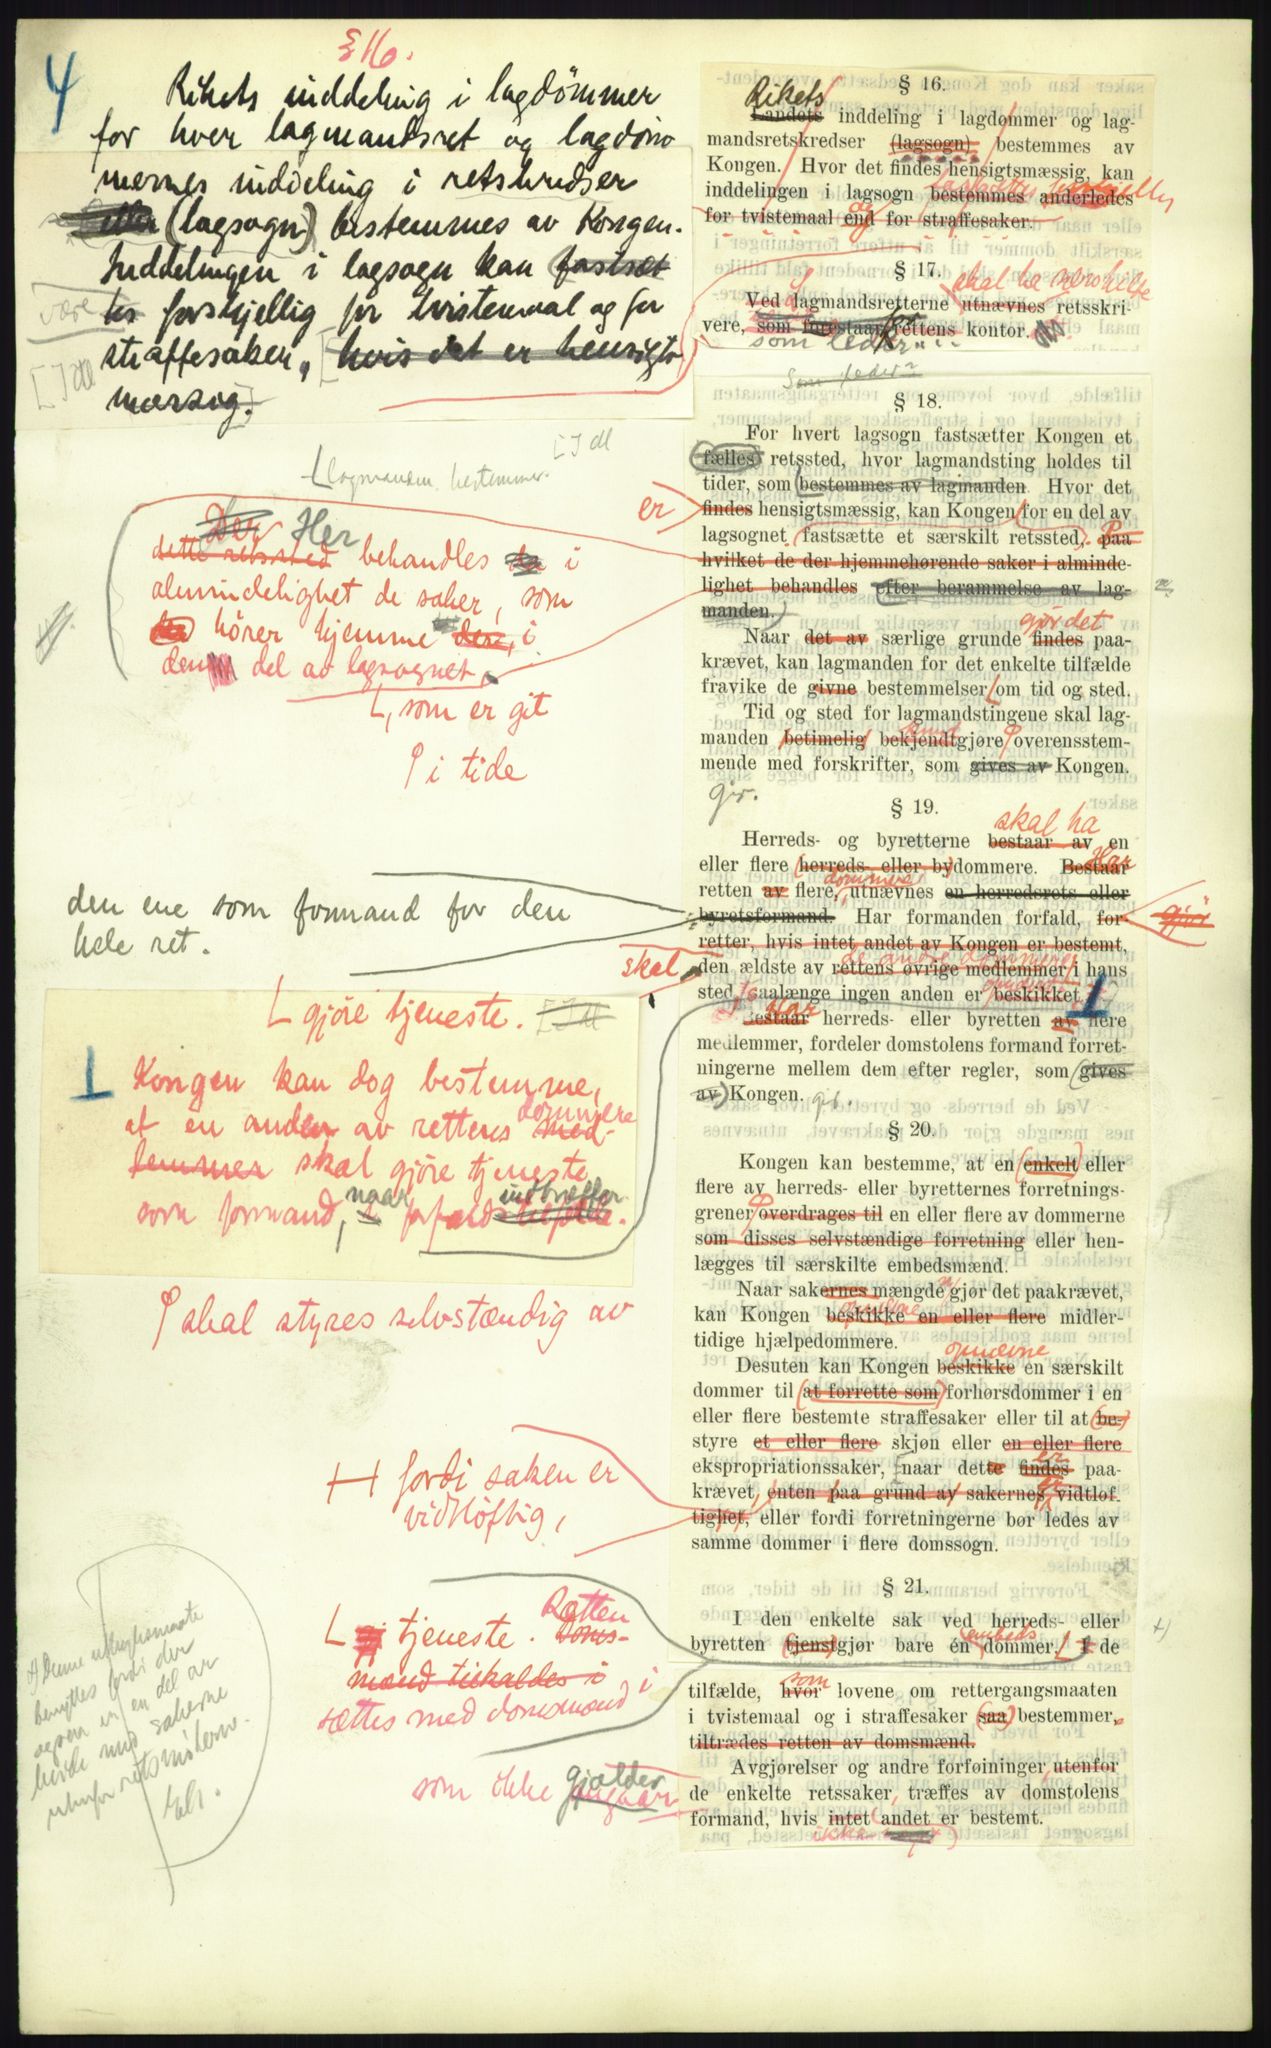 4
§ 16.
Rikets inddeling i lagdömmer
for hver lagmandsret og lagdöm
mernes inddeling i retskredser
eller (lagsogn) bestemmes av Kongen.
Inddelingen i lagsogn kan fastsæt
tes forskjellig for tvistemaal og for
straffesaker, hvis det er hensigts
mæssig.
være
[ ] dl
Lagmanden bestemmer
[ ] dl
Der Her
dette retssted behandles da i
almindelighet de saker, som
hörer hjemme der, i
den del av lagsognet.
L, som er git
i tide
den ene som formand for den
hele ret.
L gjöre tjeneste. [ ] dl
1 Kongen kan dog bestemme,
at en anden av rettens med- dommere
lemmer skal gjöre tjeneste
som formand, naar forfalds indtræffer.
skal styres selvstændig av
H fordi saken er
vidtlöftig,
L tjeneste. Retten
Doms-
mænd tilkaldes i i
sættes med domsmænd
som ikke gjælder
angaar
+) Denne uttryksmaate
benyttes fordi der
ogsaa er en del av
med sakerne
utenfor retsmöterne.
§ 16.
Rikets
Landets inddeling i lagdommer og lag-
mandsretskredser (lagsogn) bestemmes av
Kongen. Hvor det findes hensigtsmæssig, kan
inddelingen i lagsogn bestemmes anderledes
for tvistemaal end for straffesaker.
og
§ 17.
skal ha særskilte
Ved lagmandsretterne utnævnes retsskri-
vere, som forestaar rettens kontor.
som leder
Som leder
§ 18.
For hvert lagsogn fastsætter Kongen et
fælles retssted, hvor lagmandsting holdes til
tider, som bestemmes av lagmanden. Hvor det
er
findes hensigtsmæssig, kan Kongen for en del av
lagsognet fastsætte et særskilt retssted, paa
hvilket de der hjemmehørende saker i alminde-
lighet behandles efter berammelse av lag-
manden.
gjör det
Naar det av særlige grunde findes paa-
krævet, kan lagmanden for det enkelte tilfælde
fravike de givne bestemmelser om tid og sted.
Tid og sted for lagmandstingene skal lag-
kund
manden betimelig bekjendtgjøre overensstem-
mende med forskrifter, som gives av Kongen.
gir.
§ 19.
skal ha
Herreds- og byretterne bestaar av en
eller flere (herreds- eller by)dommere. Bestaar
Har
dommere
retten av flere, utnævnes en herredsrets eller
byretsformand. Har formanden forfald, for-
gjör
retter, hvis intet andet av Kongen er bestemt,
skal
den ældste av rettens øvrige medlemmer i hans
de andre dommere
sted, saalænge ingen anden er beskikket.
1
Har
Bestaar herreds- eller byretten av flere
medlemmer, fordeler domstolens formand forret-
ningerne mellem dem efter regler, som (gives
av) Kongen. gir.
§ 20.
Kongen kan bestemme, at en (enkelt) eller
flere av herreds- eller byretternes forretnings-
grener overdrages til en eller flere av dommerne
som disses selvstændige forretning eller hen-
lægges til særskilte embedsmænd.
Naar sakernes mængde gjør det paakrævet,
opnævne
kan Kongen beskikke en eller flere midler-
tidige hjælpedommere.
opnævne
Desuten kan Kongen beskikke en særskilt
dommer til (at forrette som) forhørsdommer i en
eller flere bestemte straffesaker eller til at (be-)
styre et eller flere skjøn eller en eller flere
er
ekspropriationssaker, naar dette findes paa-
krævet, enten paa grund av sakernes vidtløf-
tighet, eller fordi forretningerne bør ledes av
samme dommer i flere domssogn.
§ 21.
I den enkelte sak ved herreds- eller
embeds
byretten (tjenst)gjør bare én dommer. I de
+)
som
tilfælde, hvor lovene om rettergangsmaaten
i tvistemaal og i straffesaker (saa) bestemmer,
tiltrædes retten av domsmænd.
Avgjørelser og andre forføininger utenfor
de enkelte retssaker, træffes av domstolens
formand, hvis intet andet er bestemt.
ikke